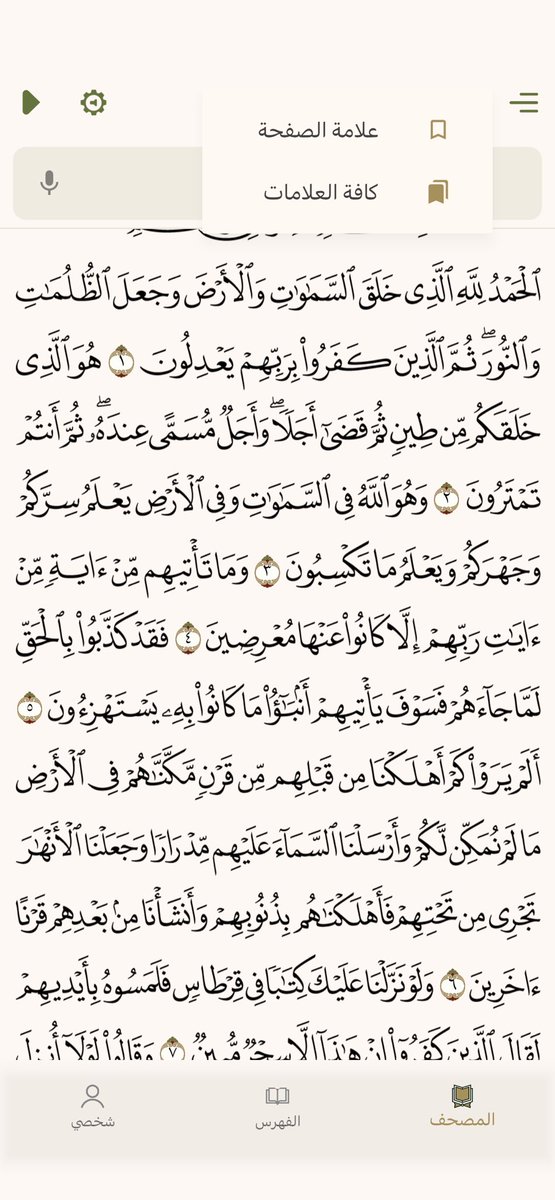 علامة الصفحة
كافة العلامات
ٱلۡحَمۡدُ لِلَّهِ ٱلَّذِي خَلَقَ ٱلسَّمَٰوَٰتِ وَٱلۡأَرۡضَ وَجَعَلَ ٱلظُّلُمَٰتِ
وَٱلنُّورَۖ ثُمَّ ٱلَّذِينَ كَفَرُواْ بِرَبِّهِمۡ يَعۡدِلُونَ ١ هُوَ ٱلَّذِي
خَلَقَكُم مِّن طِينٖ ثُمَّ قَضَىٰٓ أَجَلٗاۖ وَأَجَلٞ مُّسَمًّى عِندَهُۥۖ ثُمَّ أَنتُمۡ
تَمۡتَرُونَ ٢ وَهُوَ ٱللَّهُ فِي ٱلسَّمَٰوَٰتِ وَفِي ٱلۡأَرۡضِ يَعۡلَمُ سِرَّكُمۡ
وَجَهۡرَكُمۡ وَيَعۡلَمُ مَا تَكۡسِبُونَ ٣ وَمَا تَأۡتِيهِم مِّنۡ ءَايَةٖ مِّنۡ
ءَايَٰتِ رَبِّهِمۡ إِلَّا كَانُواْ عَنۡهَا مُعۡرِضِينَ ٤ فَقَدۡ كَذَّبُواْ بِٱلۡحَقِّ
لَمَّا جَآءَهُمۡ فَسَوۡفَ يَأۡتِيهِمۡ أَنۢبَٰٓؤُاْ مَا كَانُواْ بِهِۦ يَسۡتَهۡزِءُونَ ٥
أَلَمۡ يَرَوۡاْ كَمۡ أَهۡلَكۡنَا مِن قَبۡلِهِم مِّن قَرۡنٖ مَّكَّنَّٰهُمۡ فِي ٱلۡأَرۡضِ
مَا لَمۡ نُمَكِّن لَّكُمۡ وَأَرۡسَلۡنَا ٱلسَّمَآءَ عَلَيۡهِم مِّدۡرَارٗا وَجَعَلۡنَا ٱلۡأَنۡهَٰرَ
تَجۡرِي مِن تَحۡتِهِمۡ فَأَهۡلَكۡنَٰهُم بِذُنُوبِهِمۡ وَأَنشَأۡنَا مِنۢ بَعۡدِهِمۡ قَرۡنًا
ءَاخَرِينَ ٦ وَلَوۡ نَزَّلۡنَا عَلَيۡكَ كِتَٰبٗا فِي قِرۡطَاسٖ فَلَمَسُوهُ بِأَيۡدِيهِمۡ
لَقَالَ ٱلَّذِينَ كَفَرُوٓاْ إِنۡ هَٰذَآ إِلَّا سِحۡرٞ مُّبِينٞ ٧ وَقَالُواْ لَوۡلَآ أُنزِلَ
المصحف
الفهرس
شخصي